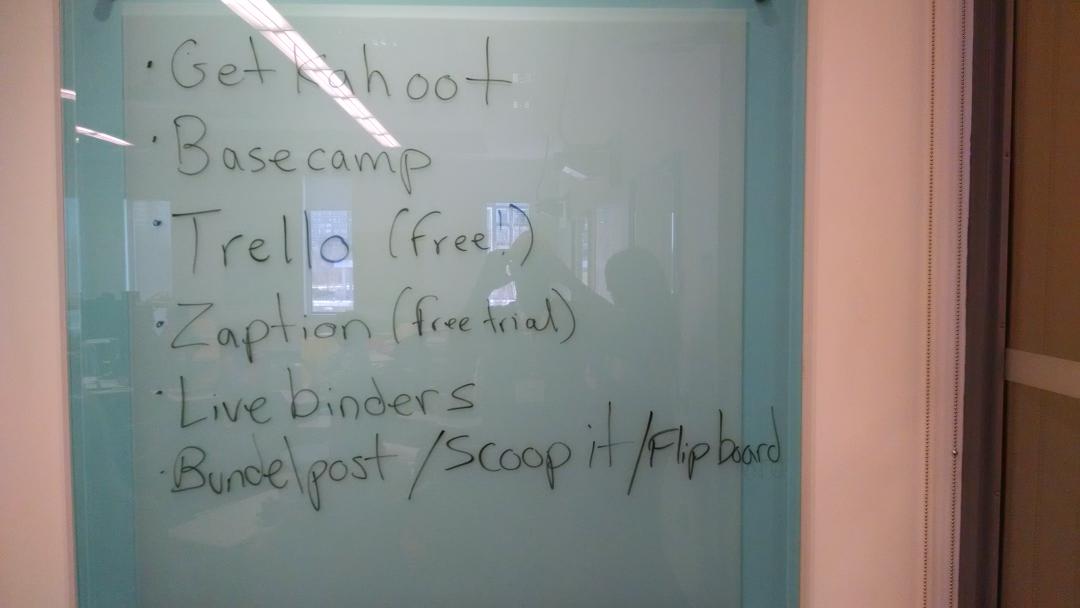 · Get Kahoot
· Basecamp
· Trello (free!)
· Zaption (free trial)
· Live binders
· Bundelpost / Scoop it / Flipboard